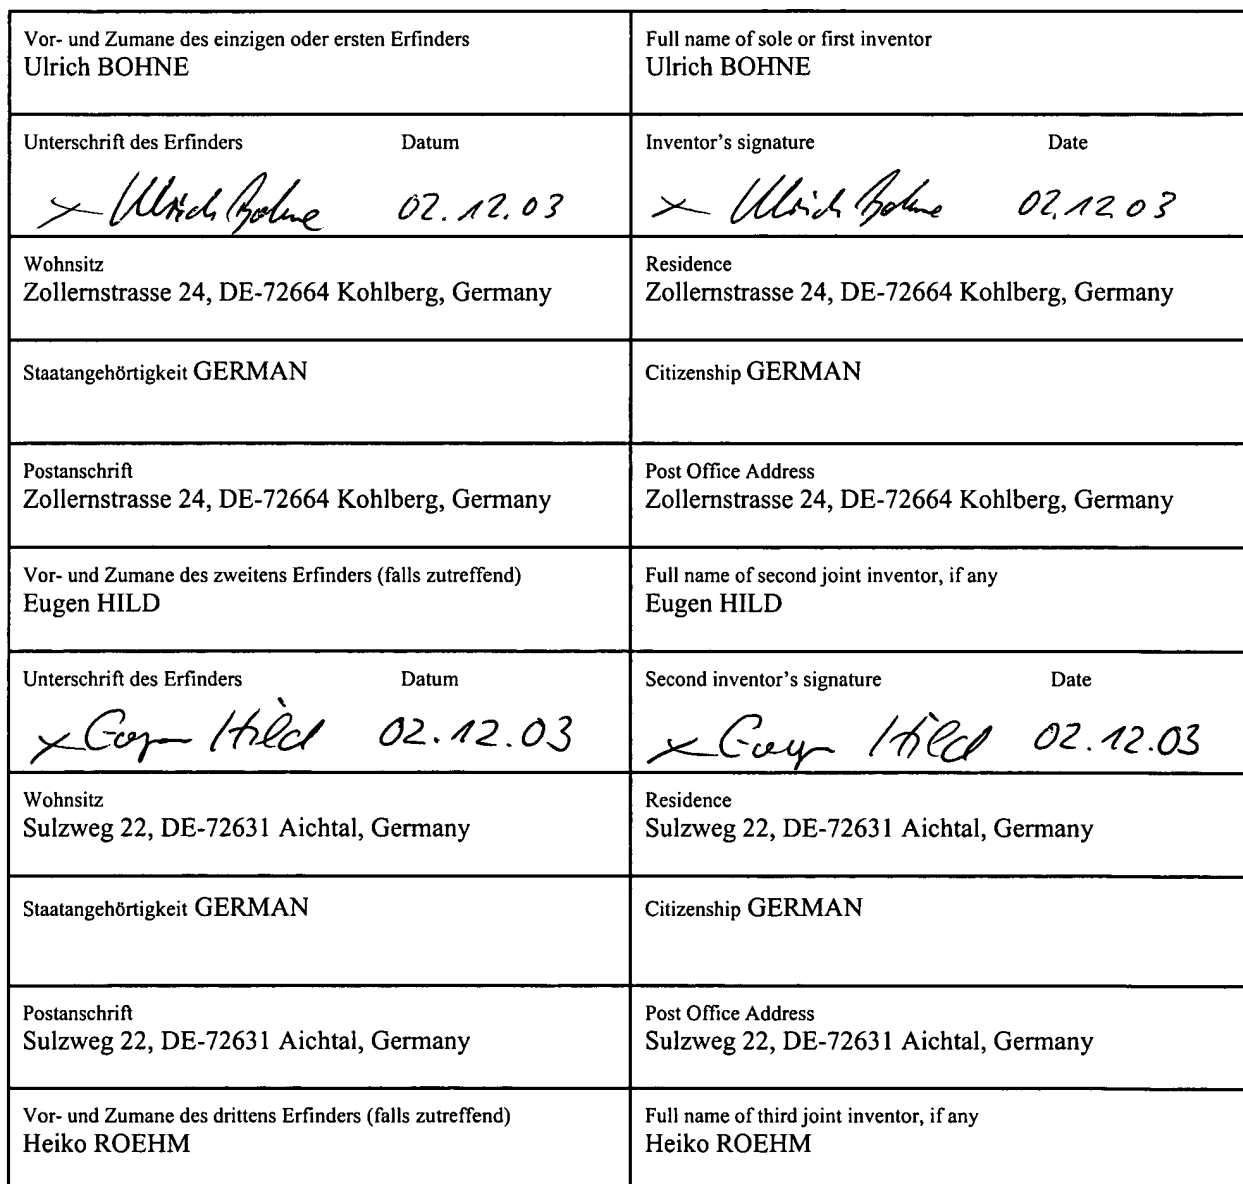 Vor- und Zumane des einzigen oder ersten Erfinders
Ulrich BOHNE
Full name of sole or first inventor
Ulrich BOHNE
Unterschrift des Erfinders Datum
× Ulrich Bohne 02.12.03
Inventor's signature Date
× Ulrich Bohne 02.12.03
Wohnsitz
Zollernstrasse 24, DE-72664 Kohlberg, Germany
Residence
Zollernstrasse 24, DE-72664 Kohlberg, Germany
Staatangehörtigkeit GERMAN
Citizenship GERMAN
Postanschrift
Zollernstrasse 24, DE-72664 Kohlberg, Germany
Post Office Address
Zollernstrasse 24, DE-72664 Kohlberg, Germany
Vor- und Zumane des zweitens Erfinders (falls zutreffend)
Eugen HILD
Full name of second joint inventor, if any
Eugen HILD
Unterschrift des Erfinders Datum
× Eugen Hild 02.12.03
Second inventor's signature Date
× Eugen Hild 02.12.03
Wohnsitz
Sulzweg 22, DE-72631 Aichtal, Germany
Residence
Sulzweg 22, DE-72631 Aichtal, Germany
Staatangehörtigkeit GERMAN
Citizenship GERMAN
Postanschrift
Sulzweg 22, DE-72631 Aichtal, Germany
Post Office Address
Sulzweg 22, DE-72631 Aichtal, Germany
Vor- und Zumane des drittens Erfinders (falls zutreffend)
Heiko ROEHM
Full name of third joint inventor, if any
Heiko ROEHM